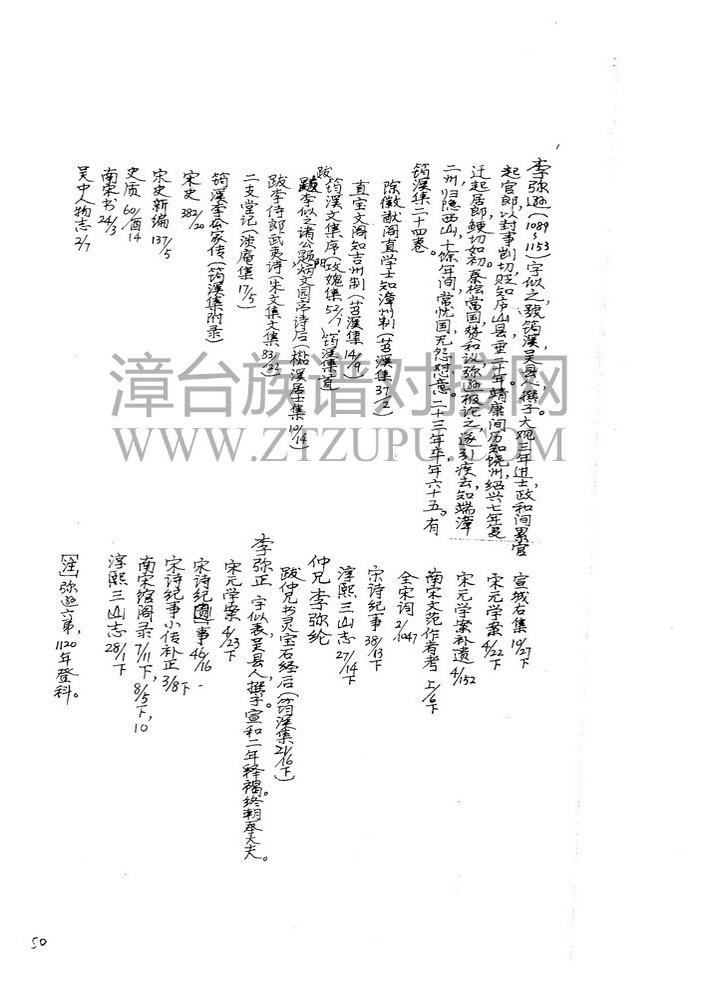 李弥逊(1089~1153)字似之,號筠溪,吴县人,撰子。大观三年进士,政和间累官
起居郎,以封事剀切贬知庐山县,垂二十年。靖康间历知饶州,绍兴七年复
迁起居郎,鲠切如初。秦桧當国,赞和议,弥逊极论之,遂引疾去,知端漳
二州,归隐西山,十馀年间,常忧国,无怨怼意。二十三年卒,年六十五。有
筠溪集二十四卷。
除徽猷阁直学士知漳州制(苕溪集37/2)
直宝文阁知吉州制(苕溪集14/9)
筠溪文集序(攻媿集52/7,筠溪集首)
跋李似之诸公题炳文园亭诗后(檆溪居士集10/14)
跋李侍郎武夷诗(朱文集文集83/22)
二支堂记(澹庵集17/5)
筠溪李公家传(筠溪集附录)
宋史382/20
宋史新编137/5
史质60/酉14
南宋书24/3
吴中人物志2/7
宣城右集10/27下
宋元学案4/22下
宋元学案补遗4/152
南宋文范作者考上/6下
全宋词2/1047
宋诗纪事38/13下
淳熙三山志27/14下
仲兄李弥纶
跋仲兄书灵宝石经后(筠溪集21/16下)
李弥正 字似表,吴县人,撰子。宣和二年释褐,终朝奉大夫。
宋元学案4/23下
宋诗纪事46/16
宋诗纪事小传补正3/8下
南宋馆阁录7/11下,8/5下,10
淳熙三山志28/1下
[注]弥逊六弟,1120年登科。
50
漳台族谱对接网
WWW.ZTZUPU.COM